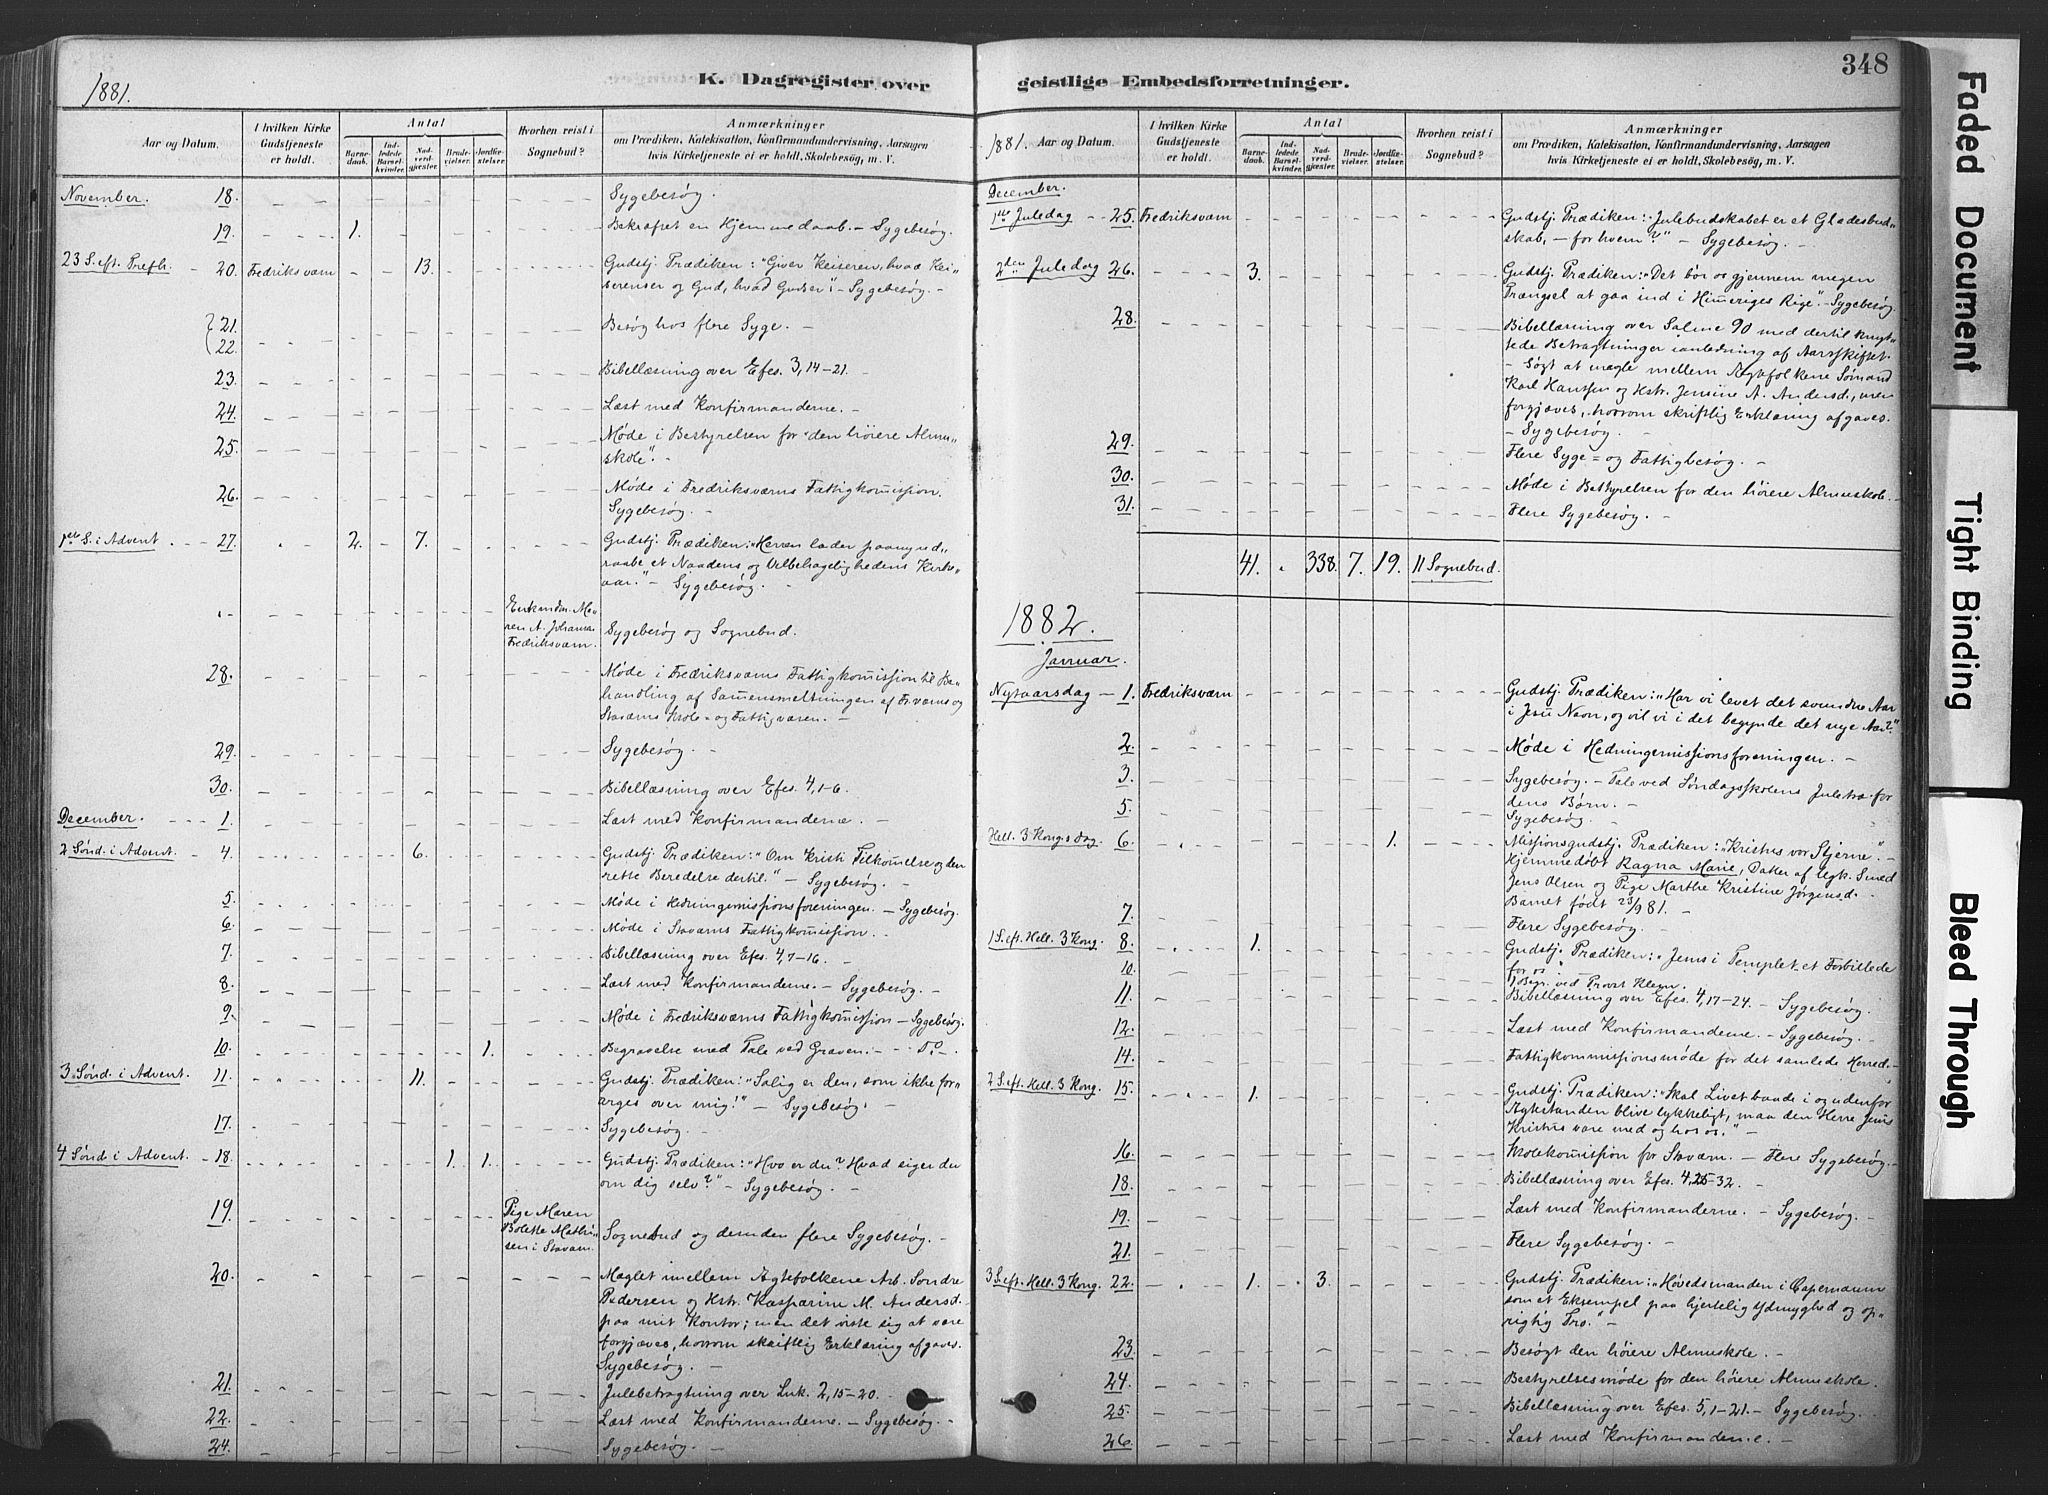 1881.
K. Dagregister over
Aar og Datum.
I hvilken Kirke Gudstjeneste er holdt.
Antal
Barne-daab.
Ind-ledede Barsel-kvinder.
Nad-verd-gjæster.
Brude-vielser.
Jordfæ-stelser.
Hvorhen reist i Sognebud?
Anmærkninger
om Prædiken, Katekisation, Konfirmandundervisning, Aarsagen
hvis Kirketjeneste ei er holdt, Skolebesøg, m. V.
November. 18. Sygebesøg.
19. 1. Bekræftet en Hjemmedaab. – Sygebesøg.
23 S. eft. Trefh. – 20. Fredriksværn 13. Gudstj. Prædiken: "Giver Keiseren, hvad Kei-
serens er og Gud, hvad Guds er". – Sygebesøg. –
21. 22. Besøg hos flere Syge. –
23. Bibellæsning over Efes. 3, 14–21.
24. Læst med Konfirmanderne. –
25. Møde i Bestyrelsen for "den höiere Almu-
skole". –
26. Møde i Fredriksværns Fattigkommission.
Sygebesøg. –
1ste S. i Advent 27. 2. 7. Gudstj. Prædiken: "Herren lader paany ud-
raabe et Naadens og Velbehagelighedens Kirke-
aar." – Sygebesøg. –
Enkemdm. Ma-
ren A. Johansen
Fredriksværn. Sygebesøg og Sognebud.
28. Møde i Fredriksværns Fattigkommission til Be-
handling af Sammensmeltningen af Fr.værns og
Staværns Skole- og Fattigvæsen. –
29. Sygebesøg. –
30. Bibellæsning over Efes. 4, 1–6.
December. 1. Læst med Konfirmanderne. –
2 Sønd. i Advent. – 4. 6. Gudstj. Prædiken: "Om Kristi Tilkommelse og den
rette Beredelse dertil." – Sygebesøg. –
5. Møde i Hedningemissionsforeningen. – Sygebesøg.
6. Møde i Staværns Fattigkommission. –
7. Bibellæsning over Efes. 4, 7–16. –
8. Læst med Konfirmanderne. – Sygebesøg. –
9. Møde i Fredriksværns Fattigkommission – Sygebesøg.
10. 1. Begravelse med Tale ved Graven. –
3 Sønd. i Advent. 11. 11. Gudstj. Prædiken: "Salig er den, som ikke for-
arges over mig!" – Sygebesøg.
17. Sygebesøg. –
4 Sønd. i Advent. – 18. 1. 1. Gudstj. Prædiken: "Hvo er du? Hvad siger du
om dig selv?" – Sygebesøg. –
19. Pige Maren
Bolette Mathi-
sen i Staværn. Sognebud og desuden flere Sygebesøg. –
20. Mæglet mellem Ægtefolkene Arb. Søndre
Pedersen og Hstr. Kasparine M. Andersd.
paa mit Kontor; men det viste sig at være
forgjæves, hvorom skriftlig Erklæring afgaves.
Sygebesøg. –
21. Julebetragtning over Luk. 2, 15–20. –
22. Læst med Konfirmanderne. – Sygebesøg. –
24. Sygebesøg. –
348
geistlige Embedsforretninger.
1881. Aar og Datum.
I hvilken Kirke Gudstjeneste er holdt.
Antal
Barne-daab.
Ind-ledede Barsel-kvinder.
Nad-verd-gjæster.
Brude-vielser.
Jordfæ-stelser.
Hvorhen reist i Sognebud?
Anmærkninger
om Prædiken, Katekisation, Konfirmandundervisning, Aarsagen
hvis Kirketjeneste ei er holdt, Skolebesøg, m. V.
December.
1ste Juledag – 25. Fredriksværn Gudstj. Prædiken: "Julebudskabet er et Glædesbud-
skab, – for hvem?" – Sygebesøg. –
2den Juledag 26. 3. Gudstj. Prædiken: "Det bør os gjennem megen
Trængsel at gaa ind i Himmeriges Rige". – Sygebesøg.
28. Bibellæsning over Salme 90 med dertil knyt-
tede Betragtninger i anledning af Aarsskiftet.
– Søgt at mægle mellem Ægtefolkene Sømand
Karl Hansen og Hstr. Jensine A. Andersd., men
forgjæves, hvorom skriftlig Erklæring afgaves.
– Sygebesøg.
29. Flere Syge- og Fattigbesøg. –
30. Møde i Bestyrelsen for den höiere Almueskole. –
31. Flere Sygebesøg. –
41. 338. 7. 19. 11 Sognebud.
1882.
Januar.
Nytaarsdag – 1. Fredriksværn Gudstj. Prædiken: "Har vi levet det svundne Aar
i Jesu Navn, og vil vi i det begynde det nye Aar?"
2. Møde i Hedningemissionsforeningen. –
3. Sygebesøg. – Tale ved Søndagsskolens Juletræ for
dens Børn. –
5. Sygebesøg. –
Hell. 3 Kong.s dag. 6. 1. Missionsgudstj. Prædiken: "Kristus vor Stjerne". –
Hjemmedøbt Ragna Marie, Datter af Ugk. Smed
Jens Olsen og Pige Marthe Kristine Jørgensd.
Barnet født 23/9 81. –
7. Flere Sygebesøg. –
1 S. eft. Hell. 3 Kong. 8. 1. Gudstj. Prædiken: "Jesus i Templet et Forbillede
for os".
10. 1 Begr. ved Provst Klem.
11. Bibellæsning over Efes. 4, 17–24. – Sygebesøg.
12. Læst med Konfirmanderne. – Sygebesøg. –
14. Fattigkommissionsmøde for det samlede Herred. –
2 S. eft. Hell. 3 Kong. 15. 1. Gudstj. Prædiken: "Skal Livet baade i og udenfor
Ægtestanden blive lykkeligt, maa den Herre Jesus
Kristus være med og hos os." –
16. Skolekommission for Staværn. – Flere Sygebesøg. –
18. Bibellæsning over Efes. 4, 25–32. –
19. Læst med Konfirmanderne. – Sygebesøg. –
21. Flere Sygebesøg. –
3 S. eft. Hell. 3 Kong. 22. 1. 3. Gudstj. Prædiken: "Høvedsmanden i Capernaum
som et Eksempel paa hjertelig Ydmyghed og op-
rigtig Tro." –
23. Besøgt den höiere Almueskole. –
24. Bestyrelsesmøde for den höiere Almueskole.
25. Bibellæsning over Efes. 5, 1–21. – Sygebesøg. –
26. Læst med Konfirmanderne. –
Faded Document
Tight Binding
Bleed Through